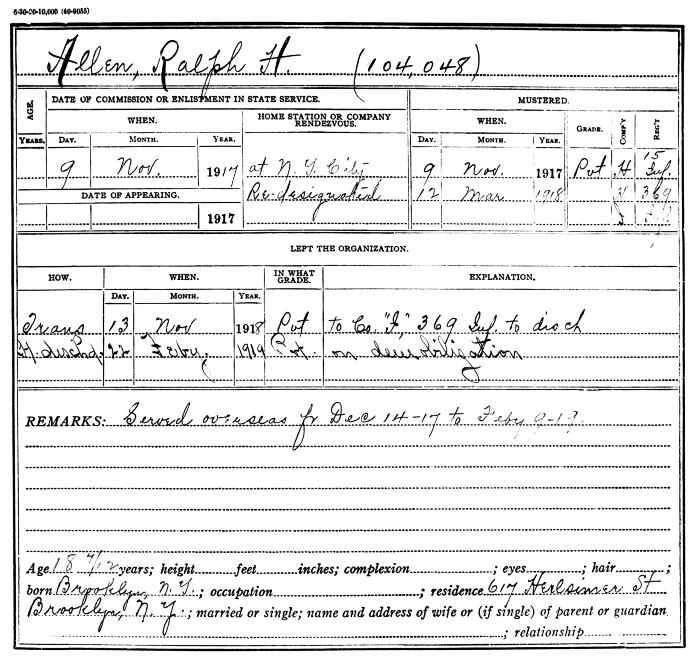 6-30-20-10,000 (40-9055)
Allen, Ralph H. (104,048)
AGE. DATE OF COMMISSION OR ENLISTMENT IN STATE SERVICE. MUSTERED.
WHEN. HOME STATION OR COMPANY RENDEZVOUS. WHEN. GRADE. COMP'Y REG'T
YEARS. DAY. MONTH. YEAR. DAY. MONTH. YEAR.
9 Nov. 1917 at N. Y. City 9 Nov. 1917 Pvt H 15 Inf.
DATE OF APPEARING. Re-designated 12 Mar 1918 369
1917
LEFT THE ORGANIZATION.
HOW. WHEN. IN WHAT GRADE. EXPLANATION.
DAY. MONTH. YEAR.
Trans 13 Nov 1918 Pvt to Co. "F," 369 Inf. to disch
H. dischg. 22 Feby. 1919 Pvt. on demobilization
REMARKS: Served overseas fr Dec 14-17 to Feby 9-19.
Age 18 7/12 years; height feet inches; complexion ; eyes ; hair ;
born Brooklyn, N. Y. ; occupation ; residence 617 St
Brooklyn, N. Y. ; married or single; name and address of wife or (if single) of parent or guardian
; relationship